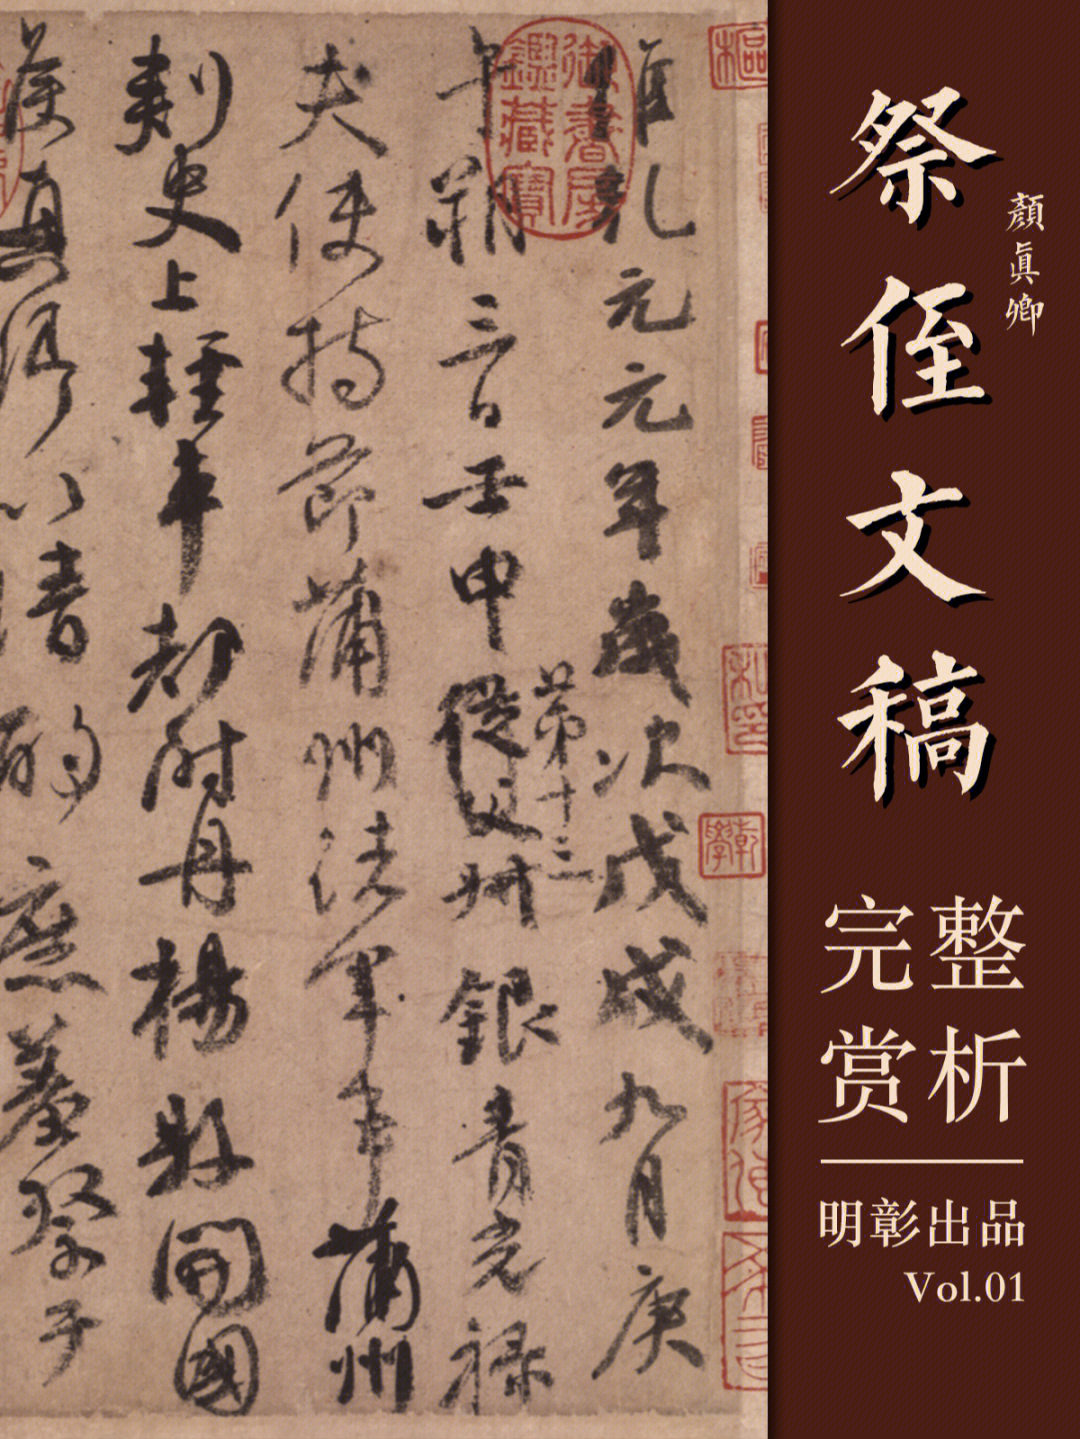 祭侄文稿
顏眞卿
完整
赏析
明彰出品
Vol.01
維乾元元年歲次戊戌九月庚
午朔三日壬申第十三從父州銀青光祿
夫使持節蒲州諸軍事蒲州
刺史上輕車都尉丹楊縣開國
侯真卿以清酌庶羞祭于
御書房鑑藏寶